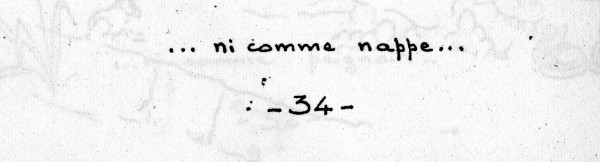 ... ni comme nappe...
- 34 -